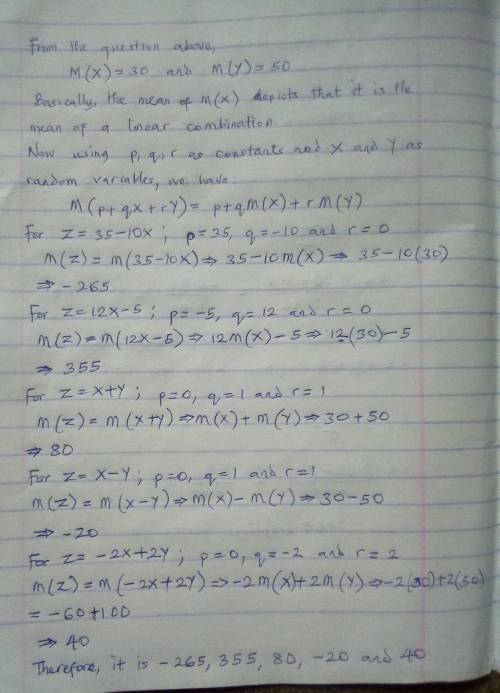 From the question above,
M(X) = 30 and M(Y) = 50
Basically, the mean of M(x) depicts that it is the
mean of a linear combination.
Now using p, q, r as constants and X and Y as
random variables, we have:
M(p+qX+rY) = p+qM(X)+rM(Y)
For Z = 35-10X ; p=35, q=-10 and r=0
M(Z) = M(35-10X) ⇒ 35-10M(X) ⇒ 35-10(30)
⇒ -265
For Z = 12X-5 ; p=-5, q=12 and r=0
M(Z) = M(12X-5) ⇒ 12M(X)-5 ⇒ 12(30)-5
⇒ 355
For Z = X+Y ; p=0, q=1 and r=1
M(Z) = M(X+Y) ⇒ M(X)+M(Y) ⇒ 30+50
⇒ 80
For Z = X-Y ; p=0, q=1 and r=1
M(Z) = M(X-Y) ⇒ M(X)-M(Y) ⇒ 30-50
⇒ -20
For Z = -2X+2Y ; p=0, q=-2 and r=2
M(Z) = M(-2X+2Y) ⇒ -2M(X)+2M(Y) ⇒ -2(30)+2(50)
= -60+100
⇒ 40
Therefore, it is -265, 355, 80, -20 and 40